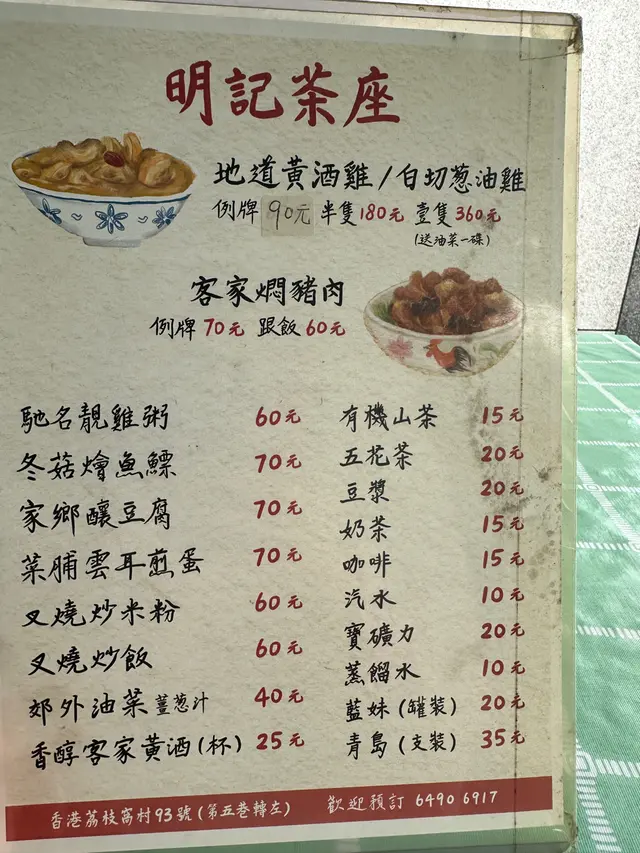 明記茶座
地道黃酒雞/白切葱油雞
例牌 90元 半隻180元 壹隻360元
(送油菜一碟)
客家燜豬肉
例牌70元 跟飯60元
馳名靚雞粥 60元
冬菇燴魚鰾 70元
家鄉釀豆腐 70元
菜脯雲耳煎蛋 70元
叉燒炒米粉 60元
叉燒炒飯 60元
郊外油菜薑葱汁 40元
香醇客家黃酒(杯) 25元
有機山茶 15元
五花茶 20元
豆漿 20元
奶茶 15元
咖啡 15元
汽水 10元
寶礦力 20元
蒸餾水 10元
藍妹(罐裝) 20元
青島(支裝) 35元
香港荔枝窩村93號(第五巷轉左) 歡迎預訂 6490 6917